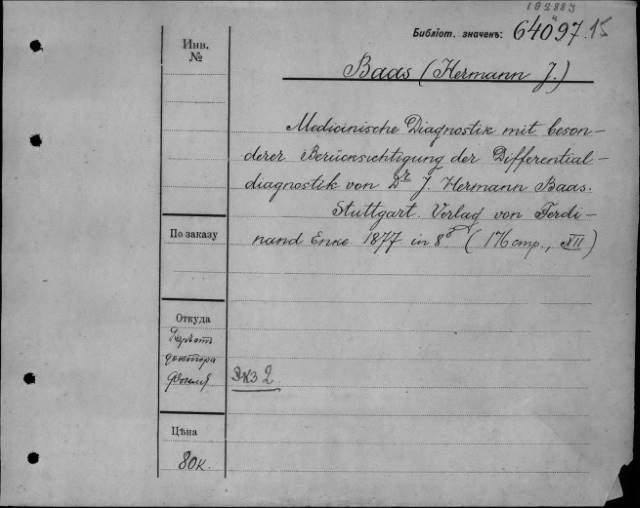 192883
Библіот. значенъ: 64097.15
Инв.
№
Baas (Hermann J.)
Medicinische Diagnostik mit beson-
derer Berücksichtigung der Differential-
diagnostik von Dr J. Hermann Baas.
Stuttgart. Verlag von Ferdi-
nand Enke 1877 in 8° (176 стр., XII)
По заказу
Откуда
доктора
экз 2
Цѣна
80к.